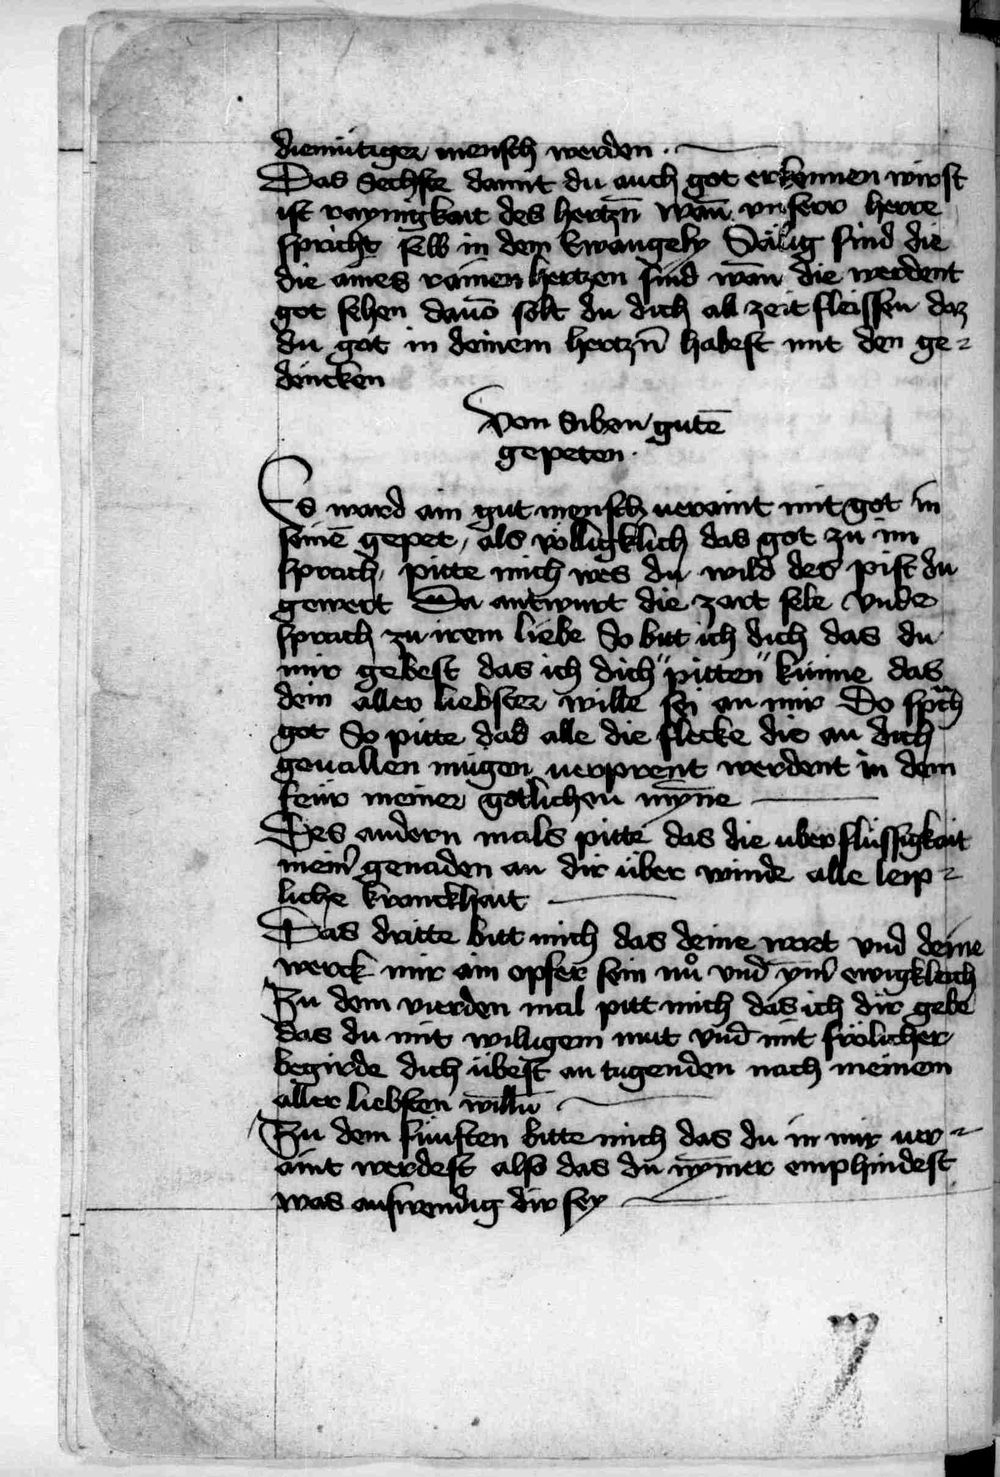 diemütiger mensch werden ·
Das Sechste damit du auch got erkennen wirst
ist raynigkait des hertzn̄ wan̄ vnserr herre
spricht selb in dem Ewangely Sälig sind die
die aines rainen hertzen sind wan̄ die werdent
got sehen dauō solt du dich all zeit fleissen daz
du got in deinem hertzn̄ habest mit den ge⸗
dencken
Von Siben gutē
gepeten ·
Es ward ain gut mensch veraint mit got in
seinē gepet, als völligklich das got zu im
sprach, pitte mich wes du wild des pist du
gewert Da antwurt die zart sele vnde
sprach zu irem liebe So bitt ich dich das du
mir gebest das ich dich "pitten" künne das
dein aller liebster wille sei an mir Do sprach
got So pitte das alle die flecke die an dich
geuallen mügen verprent werdent in dem
feür meiner götlichen myn̄e
Des andern mals pitte das die uberflüssigkait
meinr genaden an dir über winde alle leip⸗
liche kranckhait
Das dritte bitt mich das deine wort vnd deine
werck mir ain opfer sein nů vnd ym̄ ewigkleich
Zu dem vierden mal pitt mich das ich dir gebe
das du mit willigem mut vnd mit frölicher
begirde dich übest an tugenden nach meinem
aller liebsten willn̄
Zu dem fünften bitte mich das du in mir ver⸗
aint werdest also das du nym̄er emphindest
was auswendig dir sey